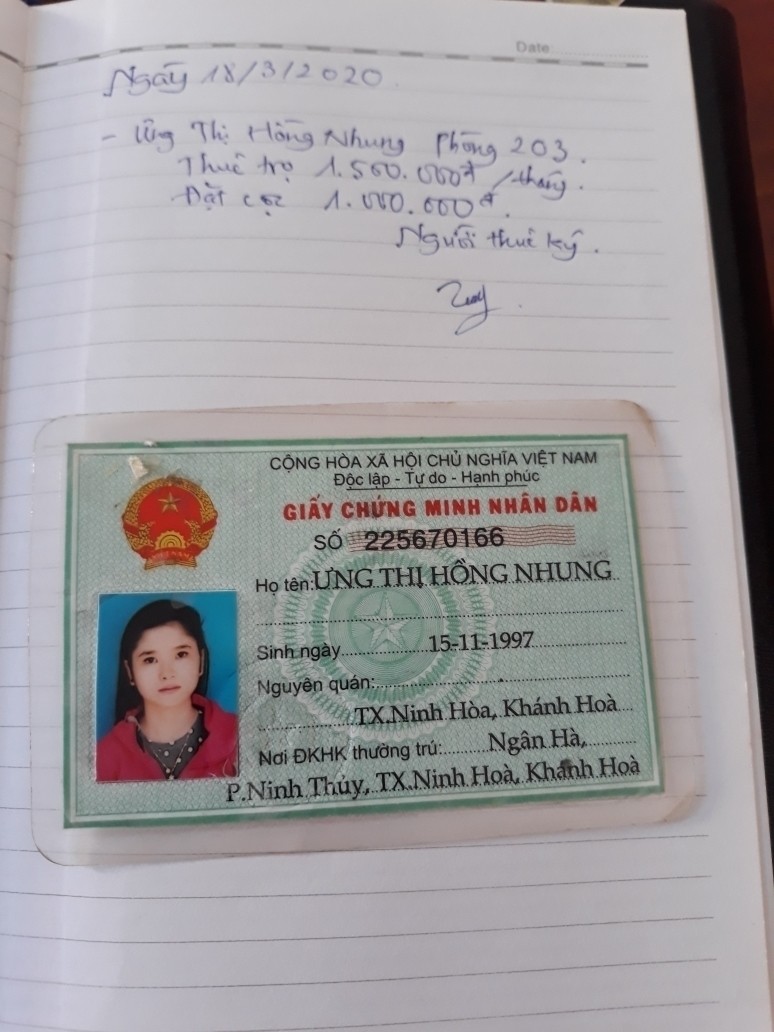 Date
Ngày 18/3/2020.
- Ưng Thị Hồng Nhung Phòng 203.
Thuê trọ 1.500.000đ/tháng.
Đặt cọc 1.000.000đ.
Người thuê ký.
CỘNG HÒA XÃ HỘI CHỦ NGHĨA VIỆT NAM
Độc lập - Tự do - Hạnh phúc
GIẤY CHỨNG MINH NHÂN DÂN
SỐ 225670166
Họ tên: ƯNG THỊ HỒNG NHUNG
Sinh ngày 15-11-1997
Nguyên quán:
TX.Ninh Hòa, Khánh Hoà
Nơi ĐKHK thường trú: Ngân Hà,
P.Ninh Thủy, TX.Ninh Hoà, Khánh Hoà